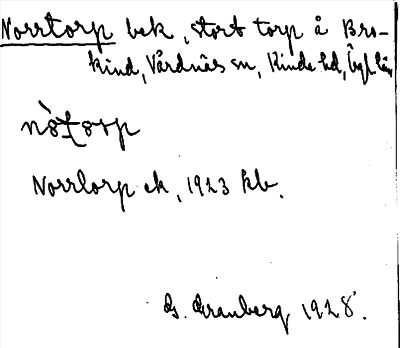 Norrtorp bek, stort torp å Bro-
kind, Vårdnäs sn, Kinds hd, Ög l län
nòtorp
Norrtorp ek, 1923 kb.
G. Granberg 1928.